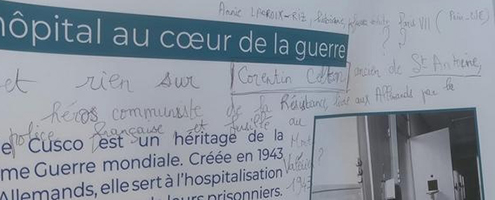 Annie LACROIX-RIZ, historienne,
hôpital au cœur de la guerre
et rien sur Corentin Celton, ancien de St Antoine,
héros communiste de la Résistance, livré aux Allemands par la
police française et fusillé au
Mont
Valérien
1943 ?
e Cusco est un héritage de la
me Guerre mondiale. Créée en 1943
Allemands, elle sert à l'hospitalisation
leurs prisonniers.